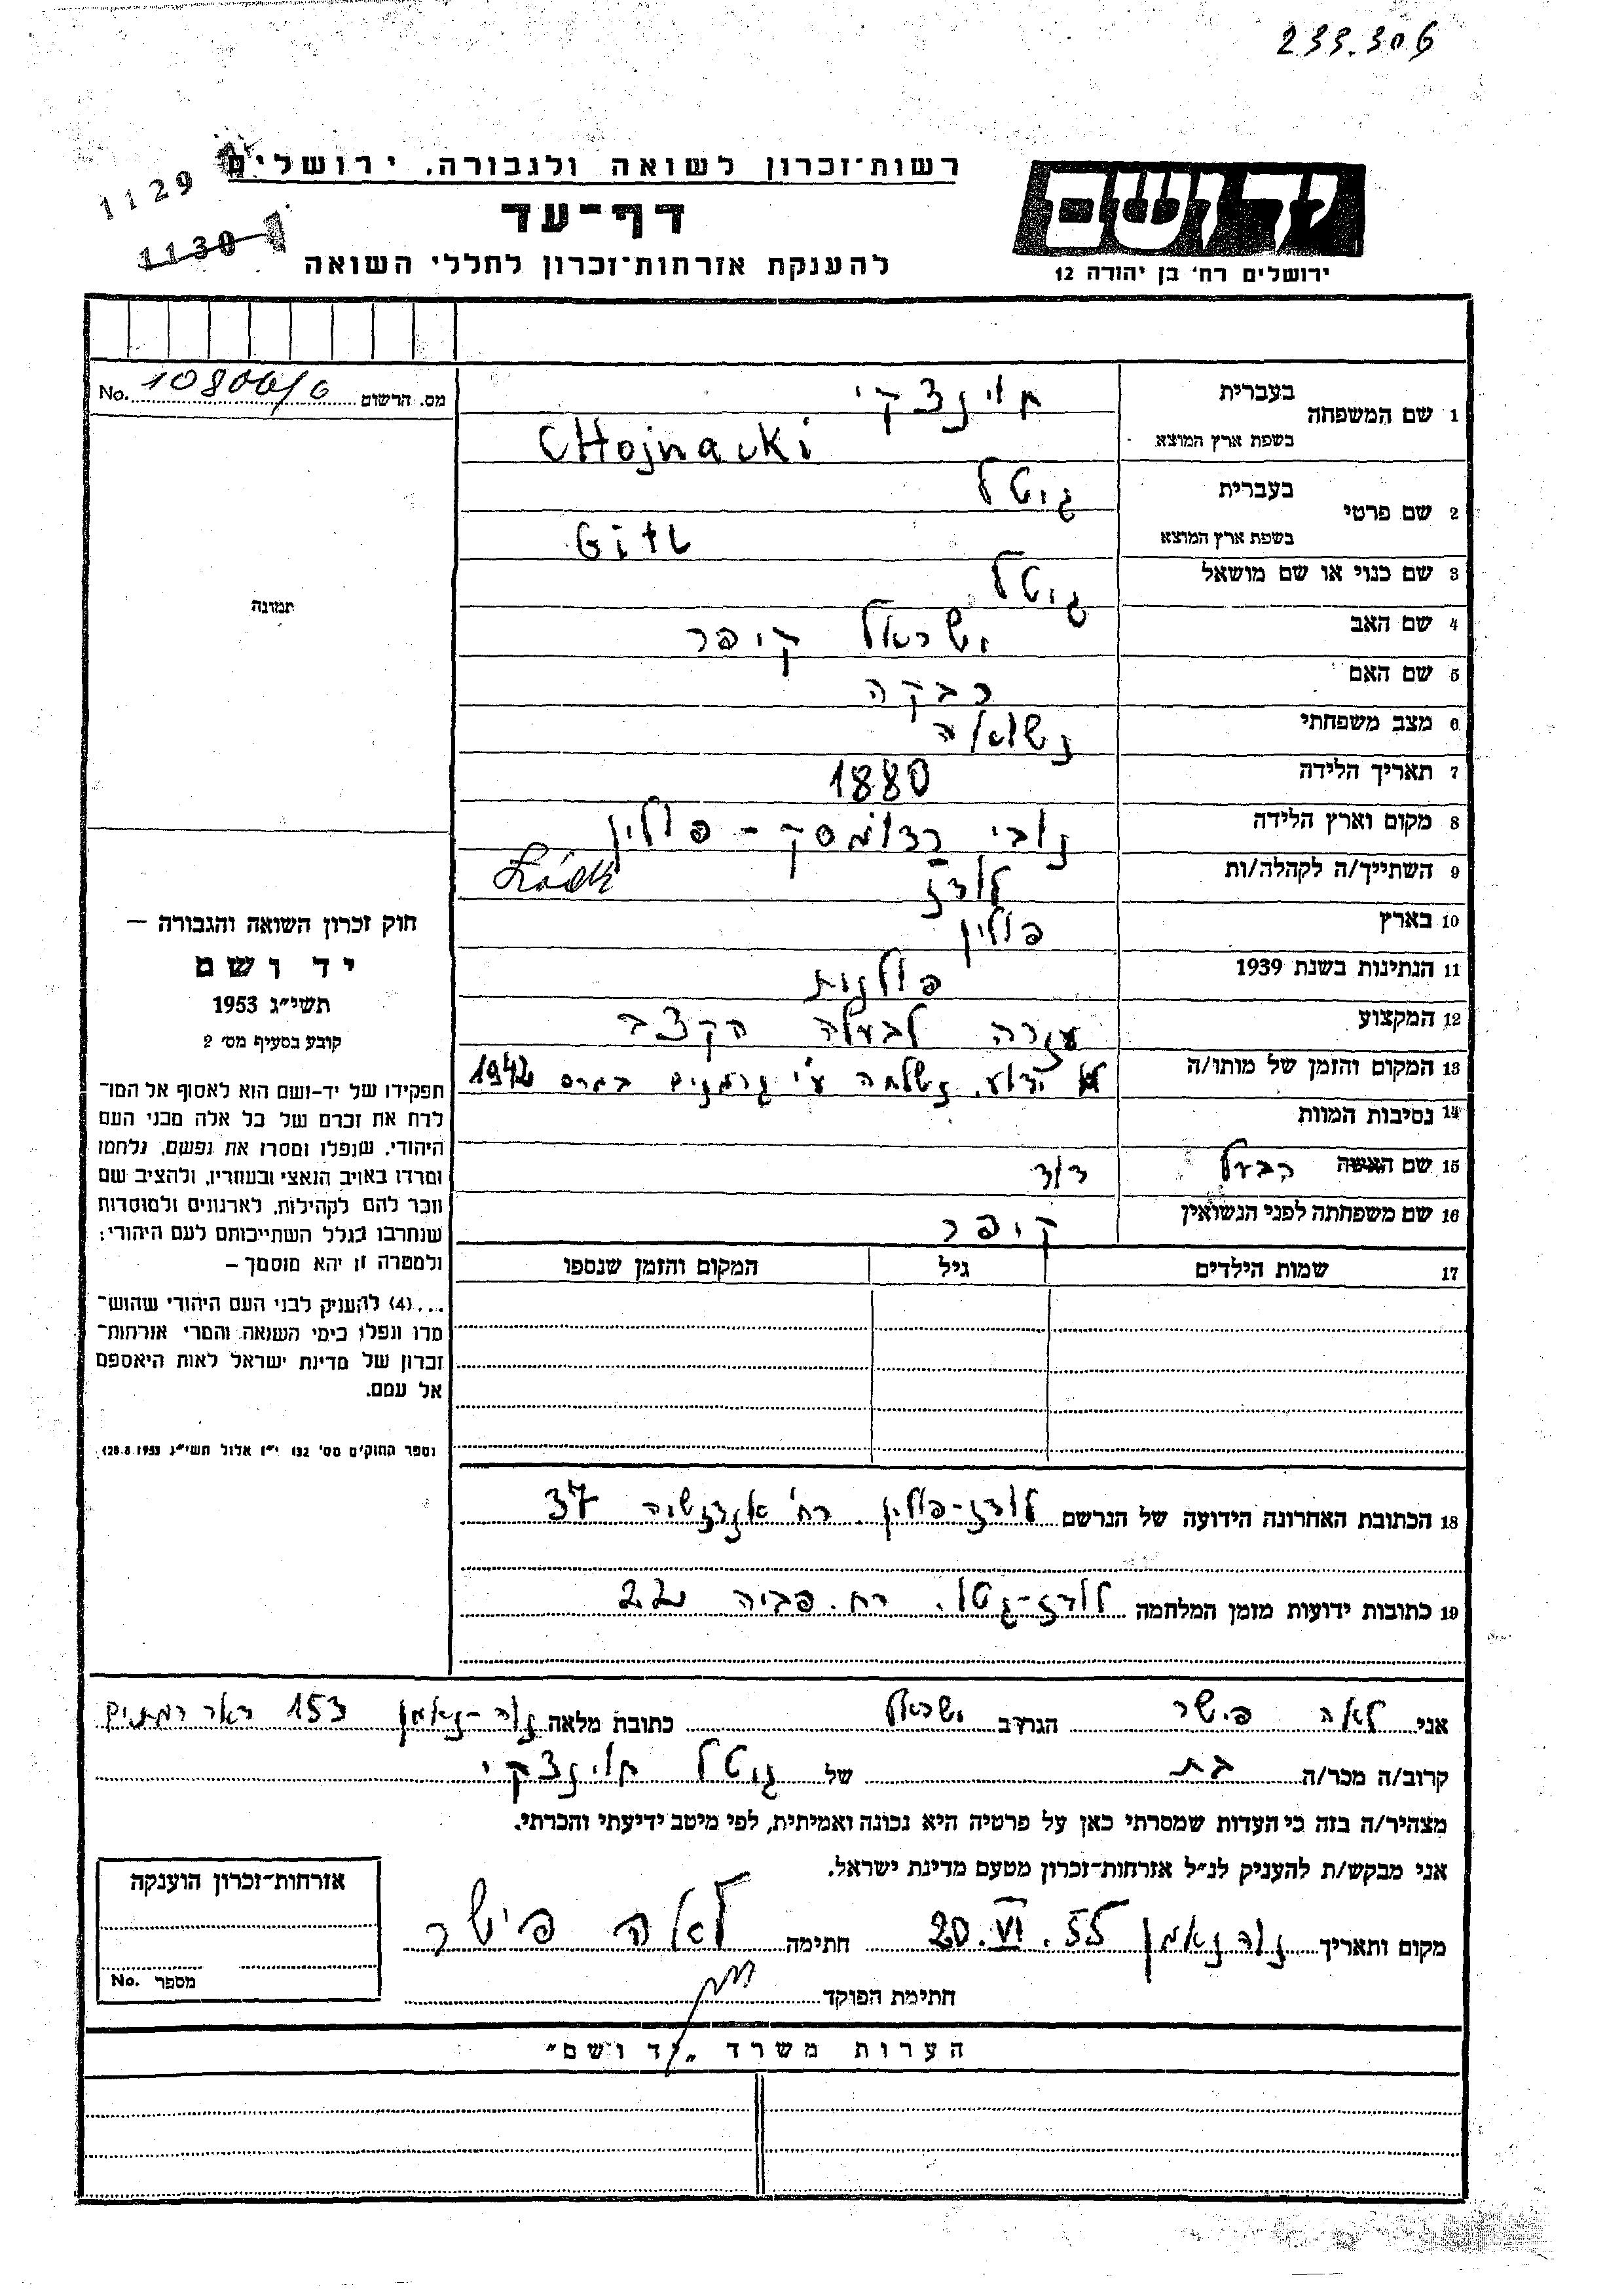 233.306
רשות־זכרון לשואה ולגבורה, ירושלים
1129
דף־עד
1130
ידושם
להענקת אזרחות־זכרון לחללי השואה
ירושלים רח' בן יהודה 12
מס. הרשום 10806/6 No.
1 שם המשפחה בעברית חוינצקי
בשפת ארץ המוצא CHojnacki
2 שם פרטי בעברית גיטל
בשפת ארץ המוצא Gitl
3 שם כנוי או שם מושאל גיטל
תמונה
4 שם האב ישראל קיפר
5 שם האם רבקה
6 מצב משפחתי נשואה
7 תאריך הלידה 1880
8 מקום וארץ הלידה נובי רדומסק - פולין
9 השתייך/ה לקהלה/ות לודז Łódź
10 בארץ פולין
11 הנתינות בשנת 1939 פולנית
12 המקצוע עזרה לבעלה הקצב
13 המקום והזמן של מותו/ה לא ידוע. נשלחה ע"י גרמנים במרס 1942
14 נסיבות המוות
15 שם האשה הבעל דוד
16 שם משפחתה לפני הנשואין קיפר
חוק זכרון השואה והגבורה —
יד ושם
תשי״ג 1953
קובע בסעיף מס׳ 2
תפקידו של יד־ושם הוא לאסוף אל המו־
לדת את זכרם של כל אלה מבני העם
היהודי, שנפלו ומסרו את נפשם, נלחמו
ומרדו באויב הנאצי ובעוזריו, ולהציב שם
וזכר להם לקהילות, לארגונים ולמוסדות
שנחרבו בגלל השתייכותם לעם היהודי;
ולמטרה זו יהא מוסמך —
...(4) להעניק לבני העם היהודי שהוש־
מדו ונפלו בימי השואה והמרי אזרחות־
זכרון של מדינת ישראל לאות היאספם
אל עמם.
(ספר החוקים מס׳ 132 י״ז אלול תשי״ג 28.8.1953)
17 שמות הילדים גיל המקום והזמן שנספו
18 הכתובת האחרונה הידועה של הנרשם לודז-פולין רח' אנדזשיה 37
19 כתובות ידועות מזמן המלחמה לודז-גטו. רח. פביה 22
אני לאה פישר הגר/ב ישראל כתובת מלאה נוה-נאמן 153 דאר רמתים
קרוב/ה מכר/ה בת של גיטל חוינצקי
מצהיר/ה בזה כי העדות שמסרתי כאן על פרטיה היא נכונה ואמיתית, לפי מיטב ידיעתי והכרתי.
אני מבקש/ת להעניק לנ״ל אזרחות־זכרון מטעם מדינת ישראל.
מקום ותאריך נוה נאמן 20.VI.55 חתימה לאה פישר
חתימת הפוקד
אזרחות־זכרון הוענקה
מספר No.
הערות משרד „יד ושם״